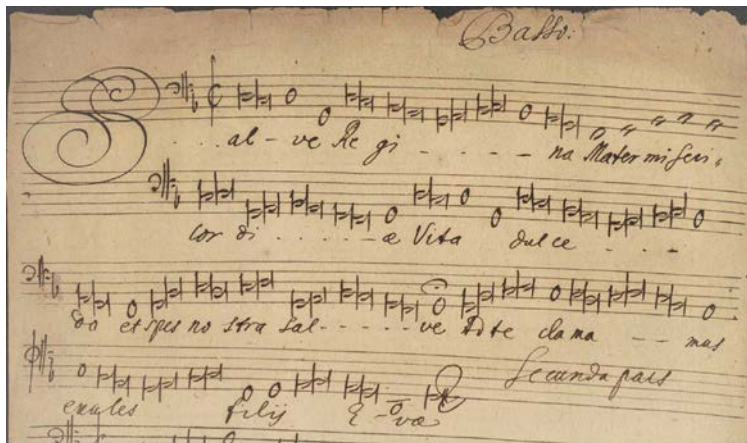 Basso:
Sal-ve Regi - - - - na Mater miseri,
cor di - - - - - - æ Vita dulce - - - -
do et spes no stra sal - - - - - ve Ad te clama - - mus
Secunda pars
exules filij E - væ